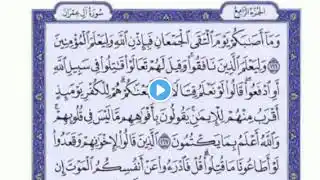 الجزء الرابع
سورة آل عمران
وَمَآ أَصَٰبَكُمْ يَوْمَ ٱلْتَقَى ٱلْجَمْعَانِ فَبِإِذْنِ ٱللَّهِ وَلِيَعْلَمَ ٱلْمُؤْمِنِينَ
١٦٦ وَلِيَعْلَمَ ٱلَّذِينَ نَافَقُوا۟ وَقِيلَ لَهُمْ تَعَالَوْا۟ قَٰتِلُوا۟ فِى سَبِيلِ ٱللَّهِ
أَوِ ٱدْفَعُوا۟ قَالُوا۟ لَوْ لَّٱتَّبَعْنَٰكُمْ هُمْ لِلْكُفْرِ يَوْمَئِذٍ
أَقْرَبُ مِنْهُمْ لِلْإِيمَٰنِ يَقُولُونَ بِأَفْوَٰهِهِم مَّا لَيْسَ فِى قُلُوبِهِمْ
وَٱللَّهُ أَعْلَمُ بِمَا يَكْتُمُونَ ١٦٧ ٱلَّذِينَ قَالُوا۟ لِإِخْوَٰنِهِمْ وَقَعَدُوا۟
لَوْ أَطَاعُونَا مَا قُتِلُوا۟ قُلْ فَٱدْرَءُوا۟ عَنْ أَنفُسِكُمُ ٱلْمَوْتَ إِن